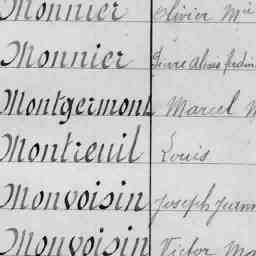 Monnier Olivier M
Monnier Pierre Alexis Ferdin
Montgermont Marcel M
Montreuil Louis
Monvoisin Joseph Jean
Monvoisin Victor Ma